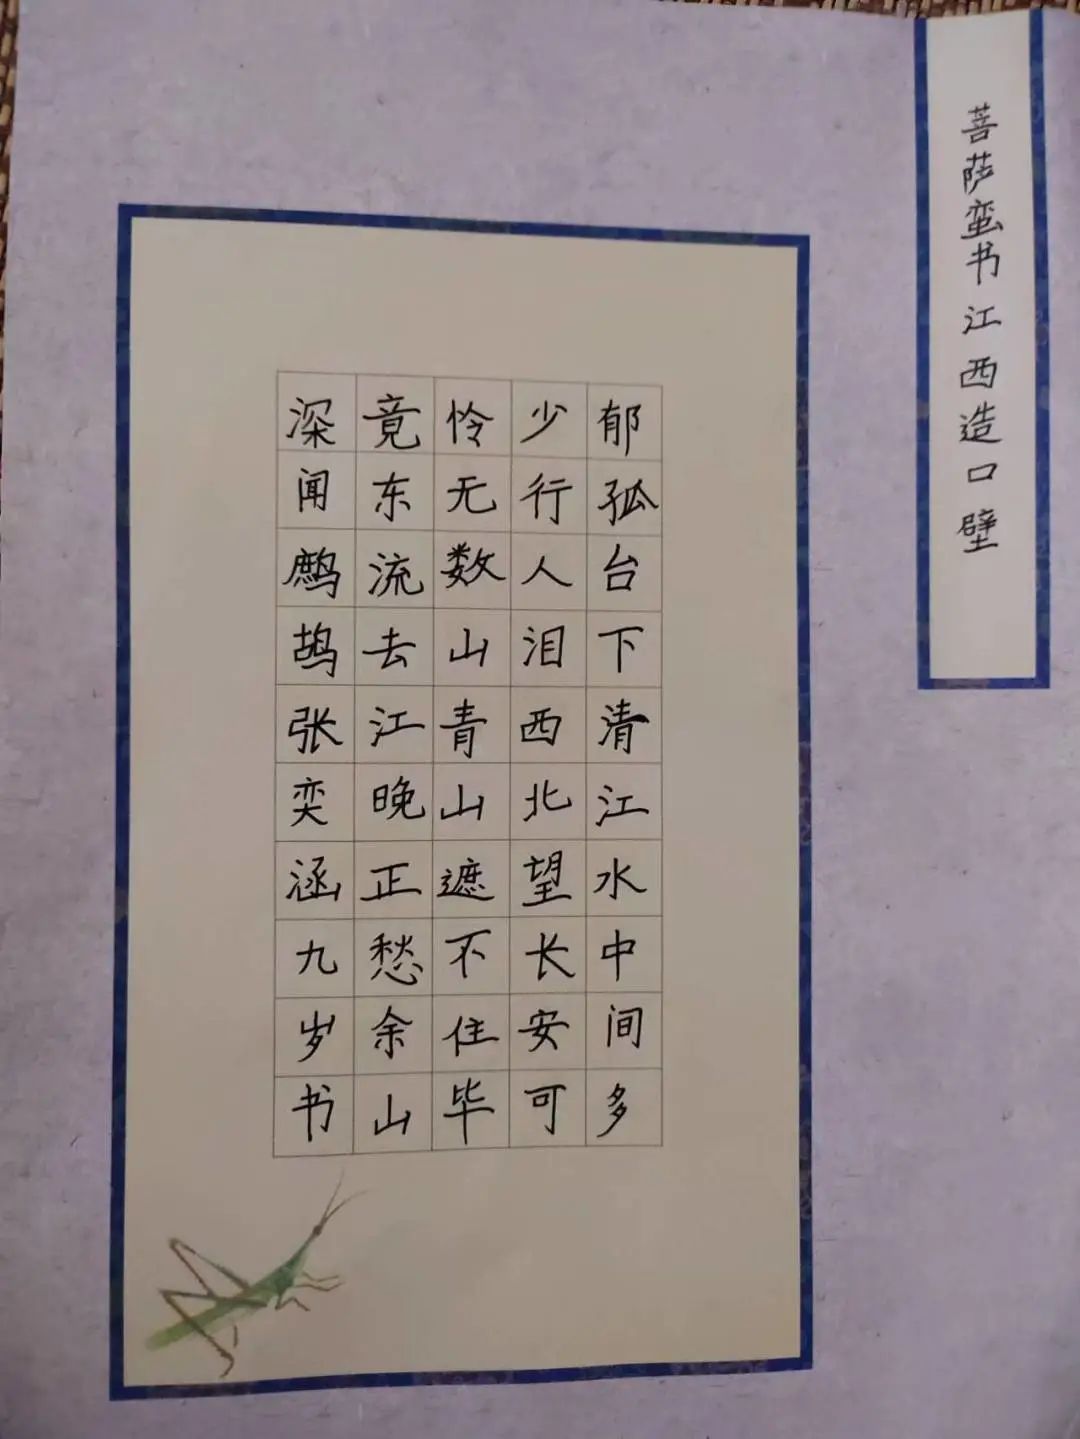 菩萨蛮书江西造口壁
郁孤台下清江水中间多
少行人泪西北望长安可
怜无数山青山遮不住毕
竟东流去江晚正愁余山
深闻鹧鸪张奕涵九岁书